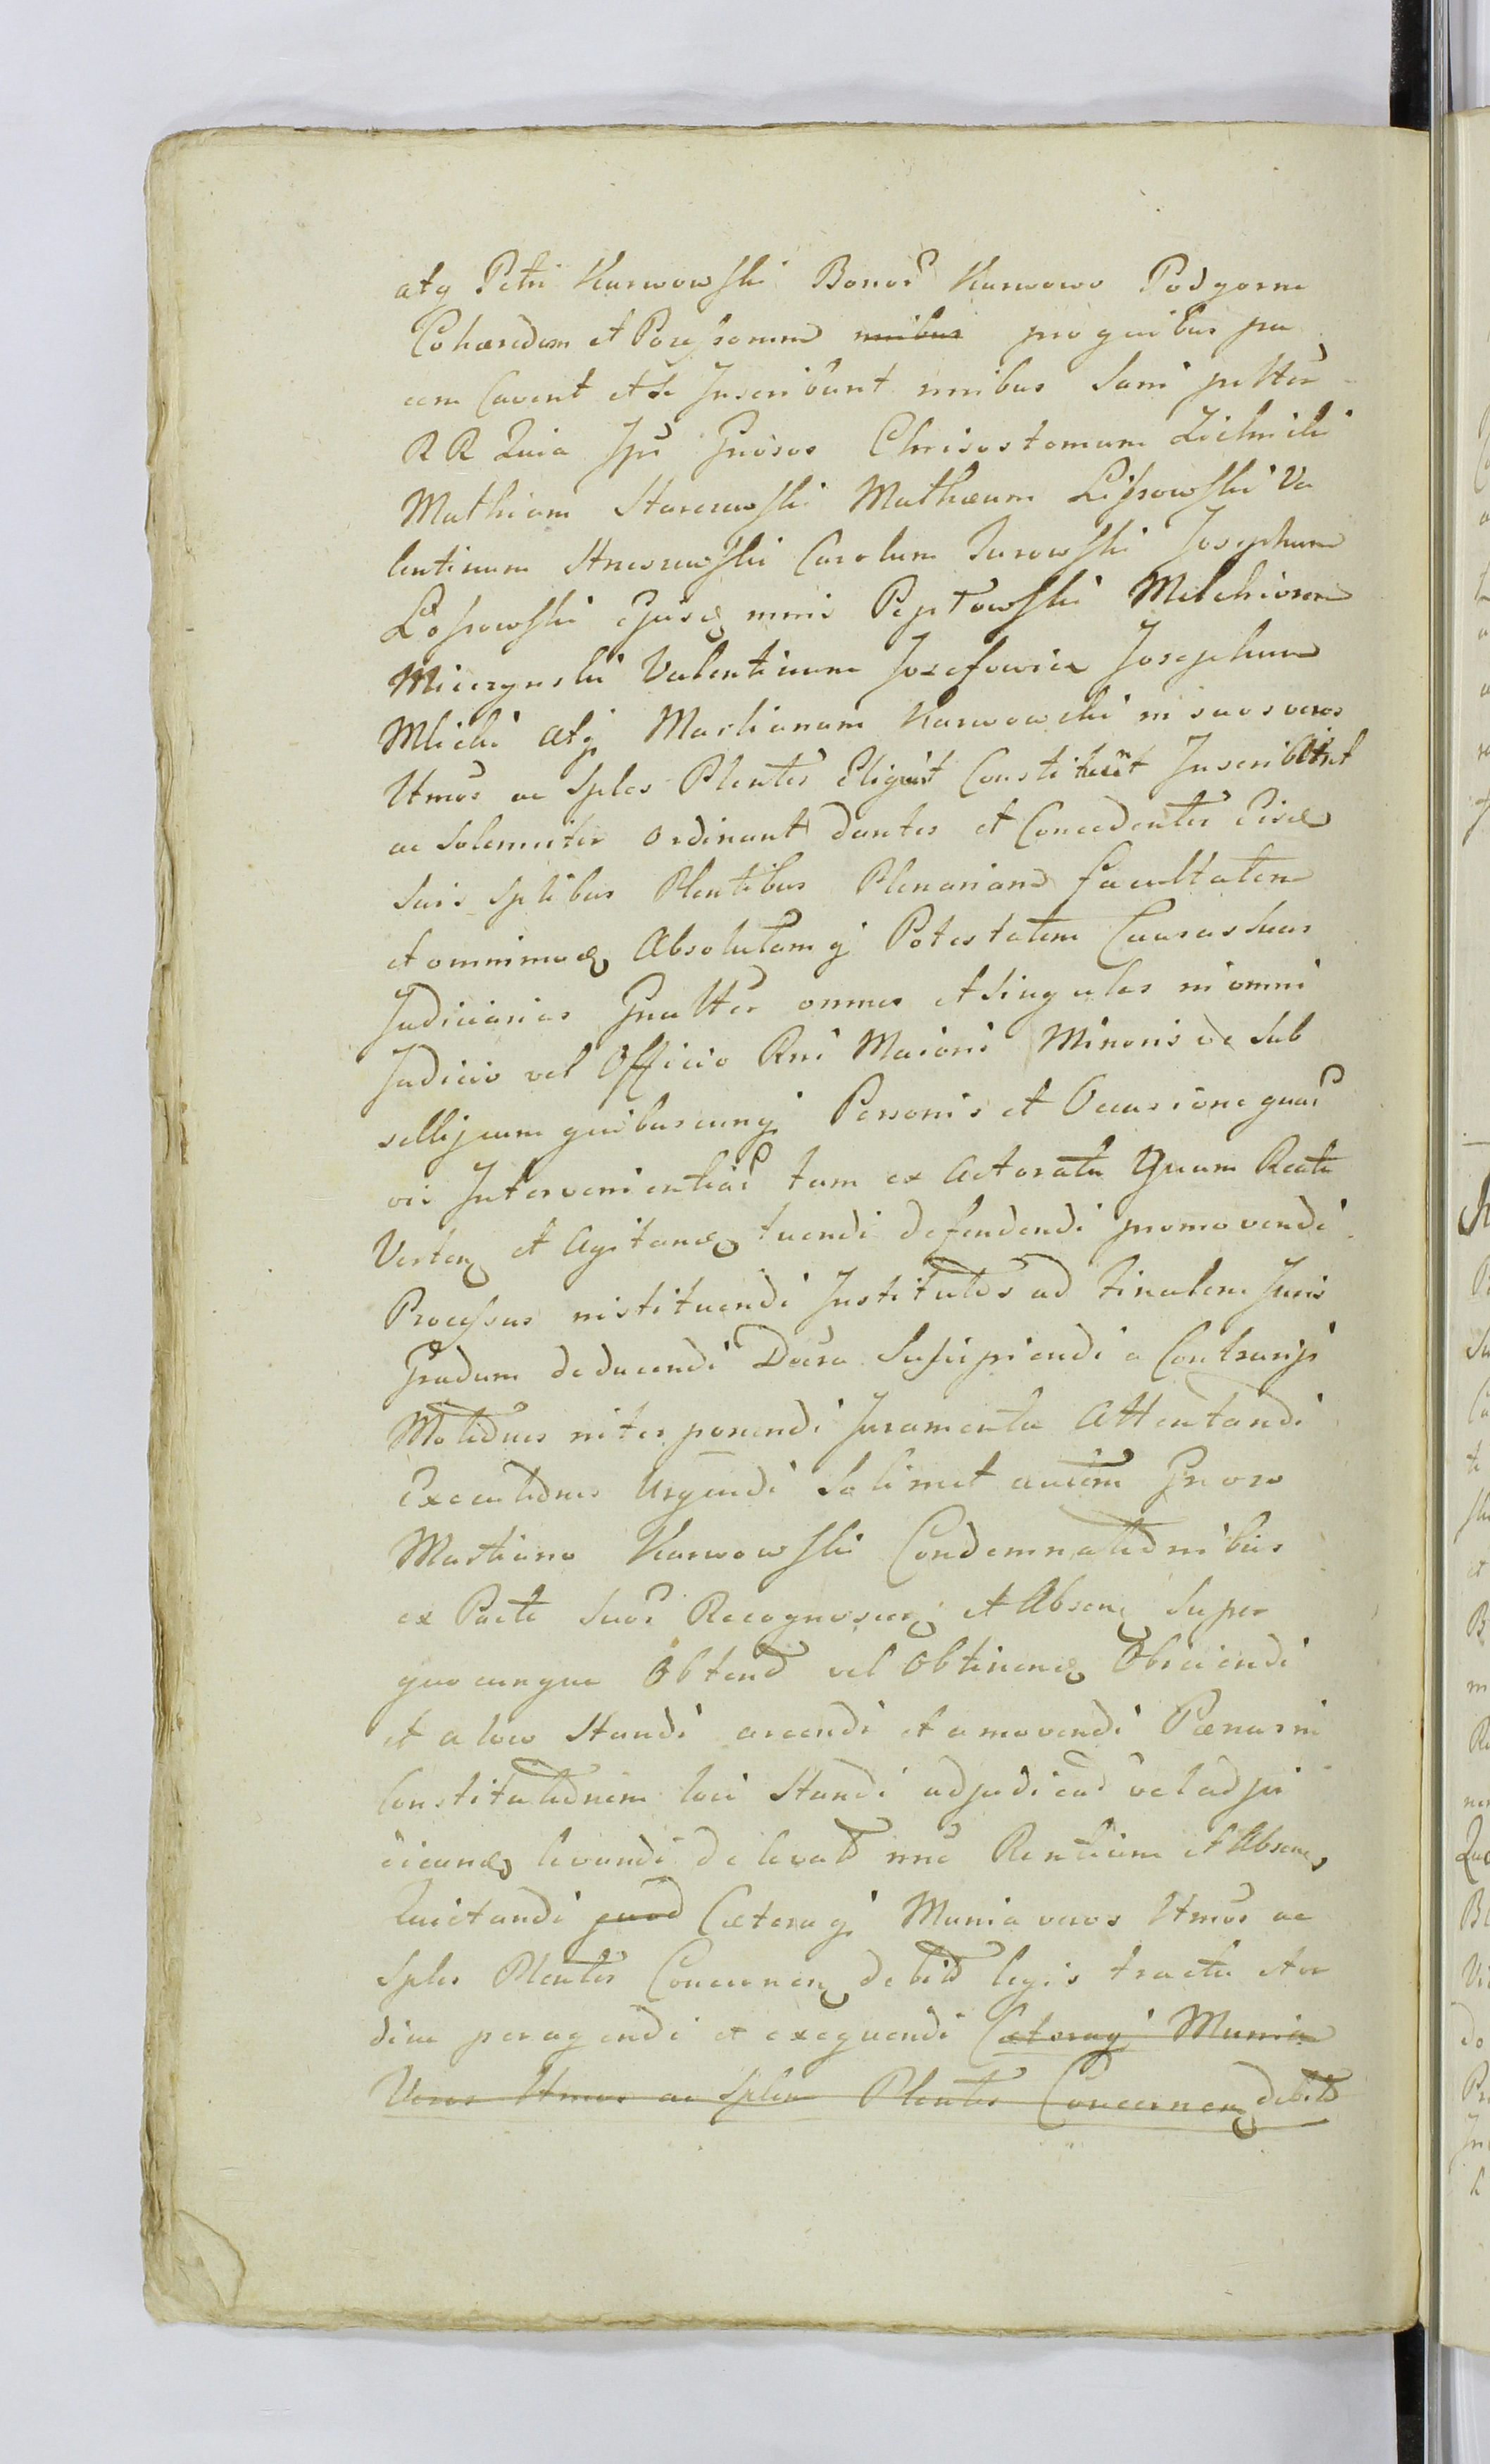 atq Petri Karwowski Bonor Karwowo Podgorne
Cohæredem et Possessorum omnibus pro quibus pa
cem Cavent et se Inscribunt omnibus Sani pttter
RR Quia Ipsi Gnosos Chrisostomum Zielinski
Mathiam Starzewski Mathæum Lissowski Va
lentinum Strzeszewski Carolum Surowski Josephum
Lossowski Ejusd mnis Peptowski Melchiorem
Miczynski Valentinum Jozefowicz Josephum
Mlicki atq Martianum Karwowski in suos veros
Ltmos ac Sples Plentes Eligunt Constituunt Inscribunt
ac Solemniter ordinant dantes et Concedentes Eisd
Suis Splibus Plentibus Plenariam facultatem
et omnimod Absolutamq Potestatem Causas Suas
Judiciarias Gnalter omnes et Singulas in omni
Judicio vel Officio Rni Maioris Minoris ve Sub
sellij cum quibuscunq Personis et Occasione quar
vis Intervenientiar tam ex Actoratu Quam Reatu
Verten et Agitand tuendi defendendi promovendi
Processus instituendi Institutos ad finalem Juris
Gradum deducendi Docra Suscipiendi a Contrarijs
Motidnes interponendi Juramenta Attentandi
Executidnes Urgendi Solimet autem Gnoso
Martiano Karwowski Condemnatidnibus
ex Parte Suor Recognoscen et Absen Super
quocunque Obtend vel Obtinend Obiiciendi
et a loco Standi arcendi et amovendi Pænas in
Constitutidnem loci Standi adjudicad vel adju
dicand levandi de levatis nne Rentium et Absen
Quietandi quod Cæteraq Munia veros Ltmos ac
Sples Plentes Concernen debito legis tractu et or
dine peragendi et exequendi Cæteraq Munia
Veros Ltmos ac Sples Plentes Concernen debito